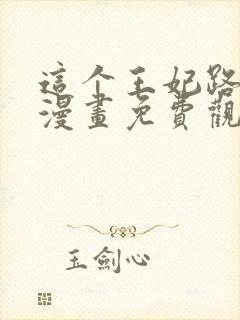 這个王妃路
漫畫免費觀
玉劍心